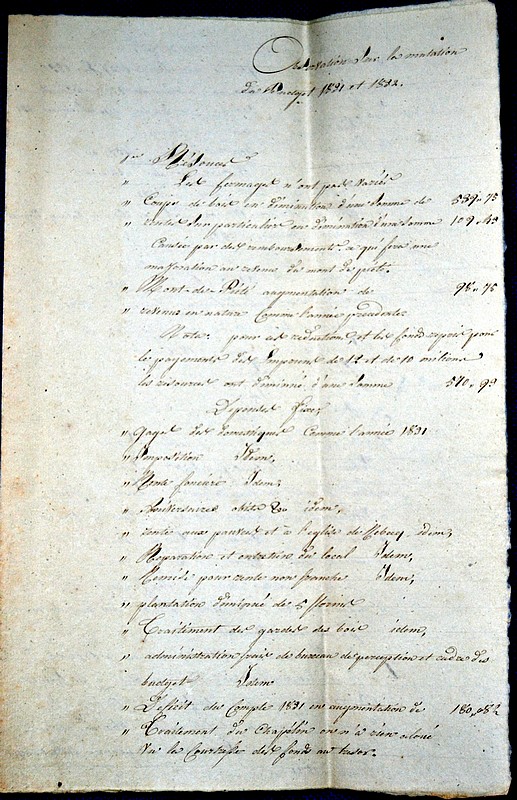 Observation Sur la mutation
du Budjet 1831 et 1832.
1er Résources
" Les fermages n'ont pas variés
" Coupe de bois en diminution d'une Somme de 539 " 75
" rentes Sur particulier en diminution d'une Somme 109 " 43
Causée par des remboursements. ce qui fera une
majoration au revenu du mont de piété.
" Mont-de-Piété augmentation de 98 " 75
" revenus en nature Comme l'année précédente
Nota. pour ces réduction, et les fonds repris pour
le payements des Emprunts de 12 et de 10 millions
les résources ont diminué d'une Somme 570 " 93
Dépenses fixes,
" gages des domestiques Comme l'année 1831
" Imposition Idem,
" Rente foncière Idem,
" Anniversaires obits &a idem,
" rente aux pauvres et à l'église de Rebecq idem,
" Réparation et entretien du local Idem,
" Remise pour rente non franche Idem,
" plantation diminué de 5 florins
" Traitement des gardes des bois idem,
" administration frais de bureau de perception et cadre des
budjet Idem
" Déficit du Compte 1831 en augmentation de 180 " 08½
" Traitement du Chapelain on n'a rien aloué
Vu la Courtresse des fonds au trésor.